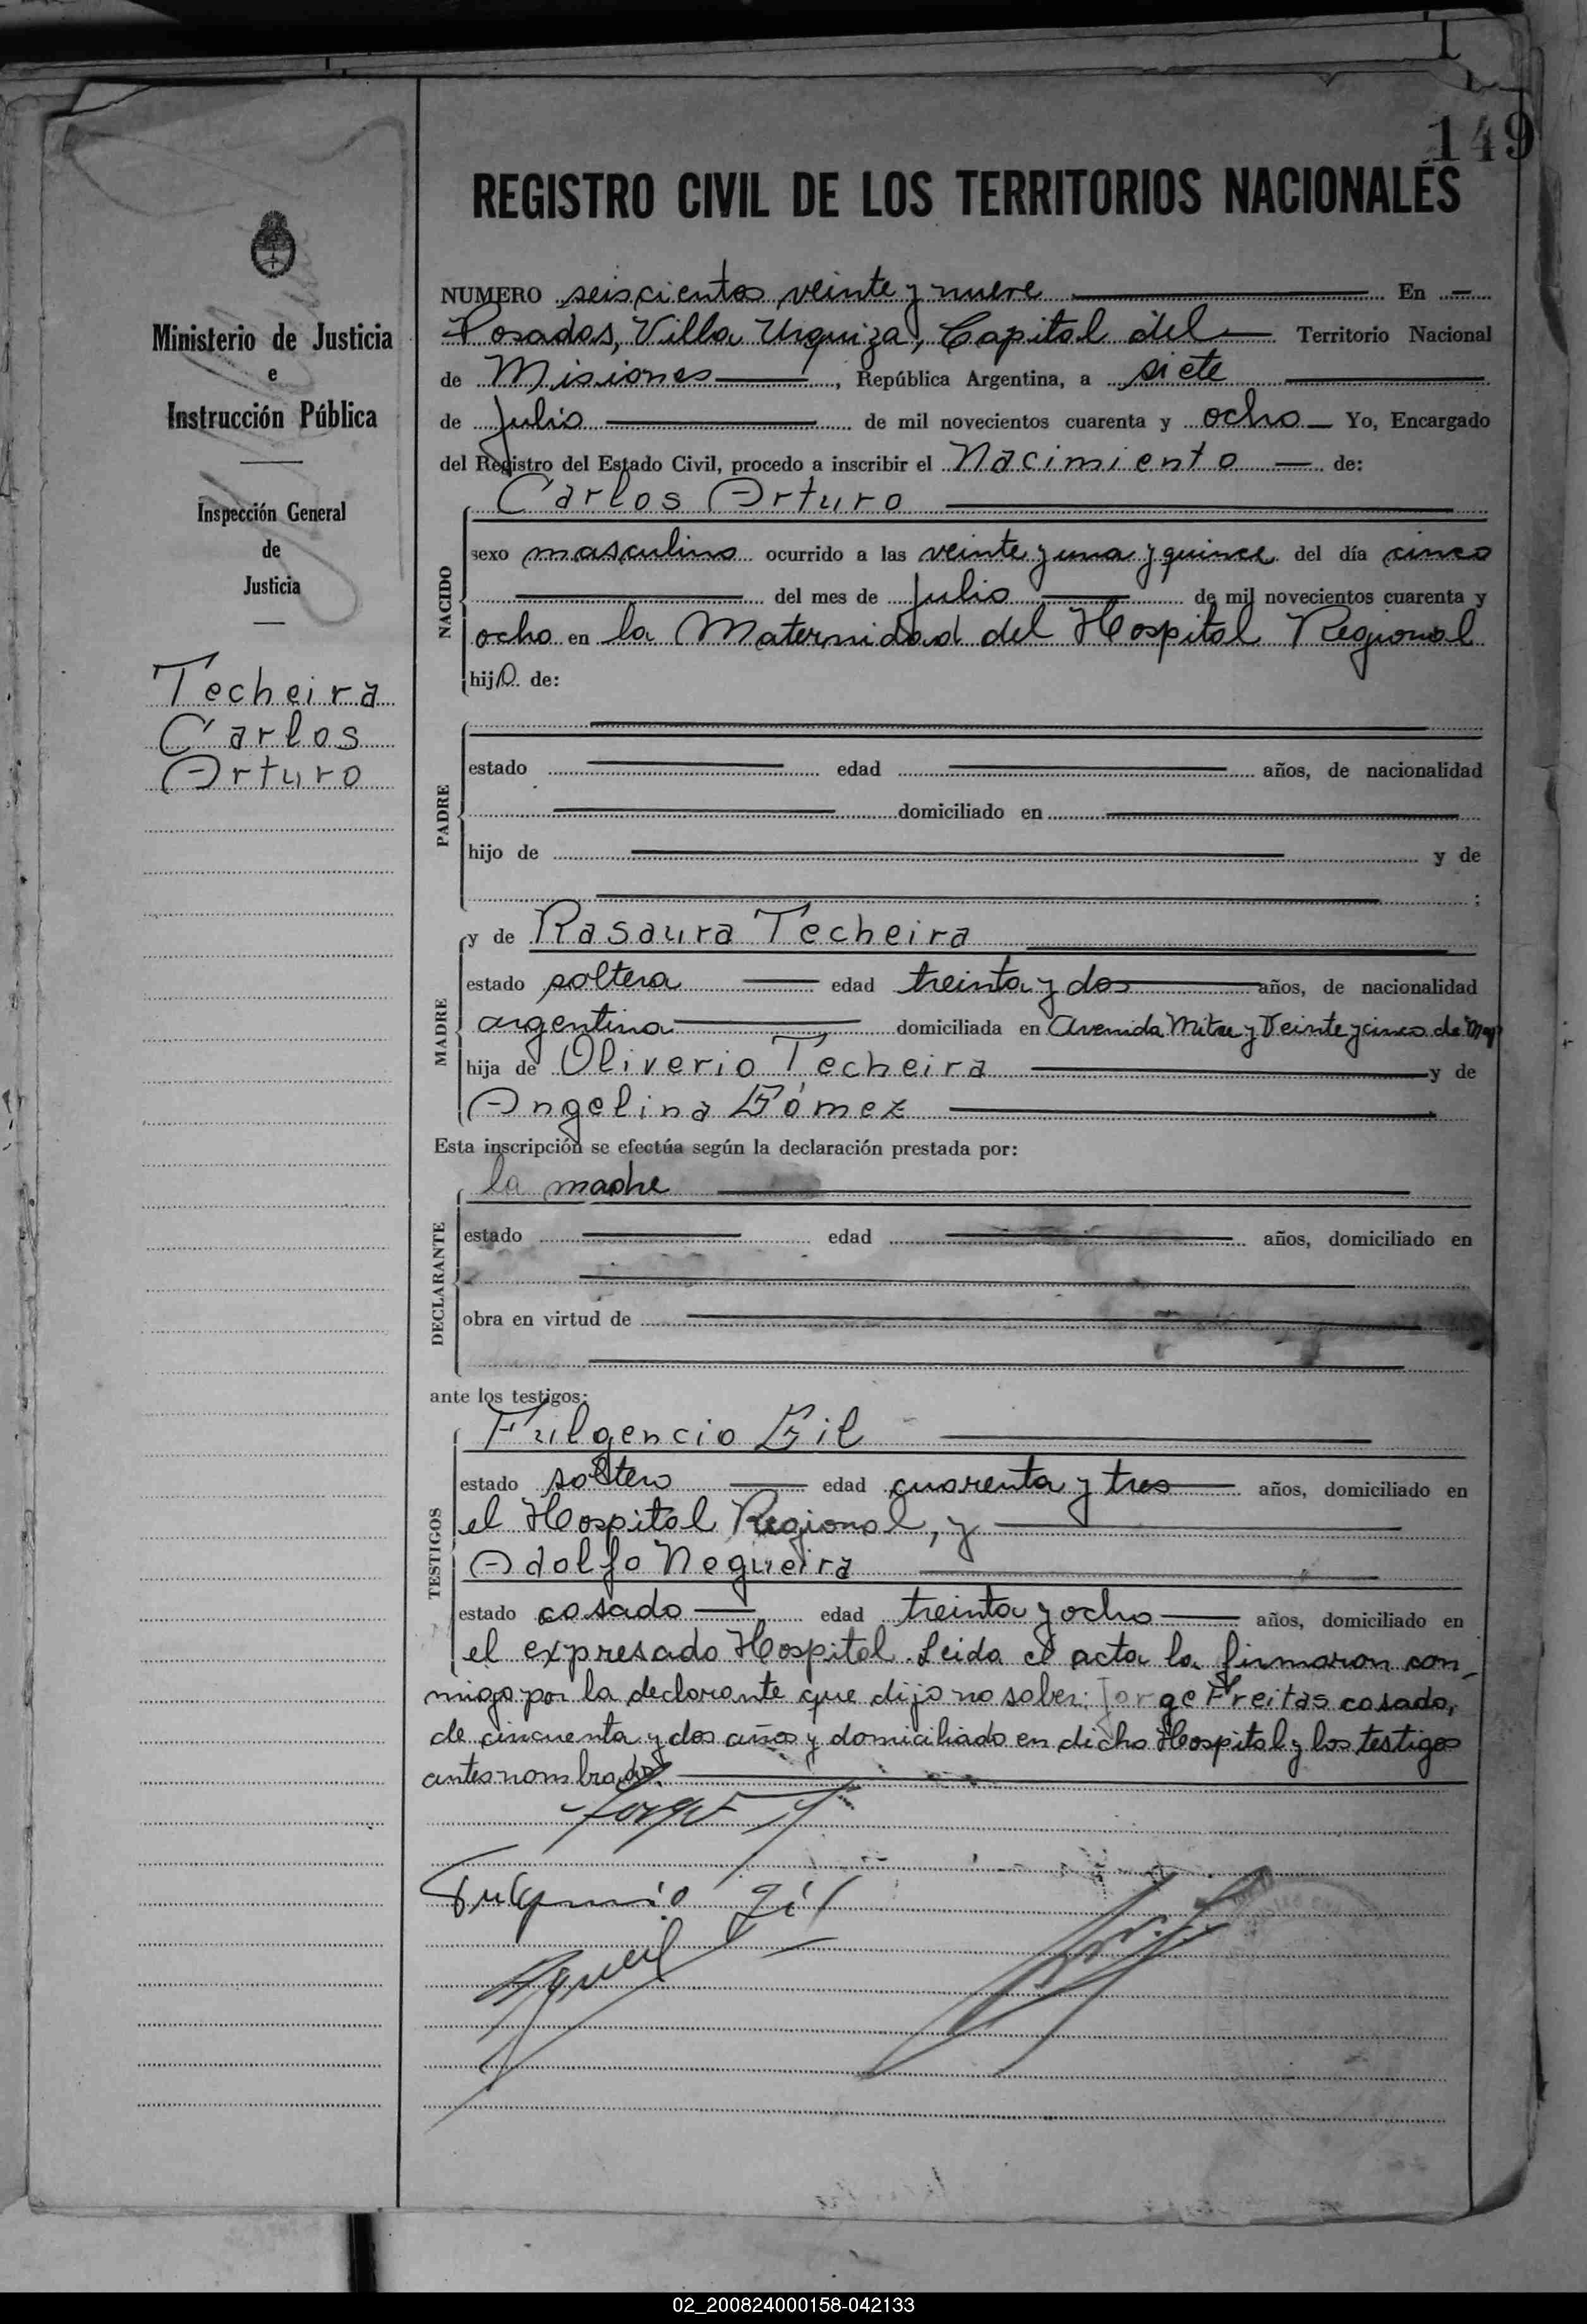 149
REGISTRO CIVIL DE LOS TERRITORIOS NACIONALES
Ministerio de Justicia
e
Instrucción Pública
Inspección General
de
Justicia
Techeira
Carlos
Arturo
NUMERO seiscientos veinte y nueve En
Posadas, Villa Urquiza, Capital del Territorio Nacional
de Misiones, República Argentina, a siete
de Julio de mil novecientos cuarenta y ocho Yo, Encargado
del Registro del Estado Civil, procedo a inscribir el Nacimiento de:
Carlos Arturo
NACIDO
sexo masculino ocurrido a las veinte y una y quince del día cinco
del mes de Julio de mil novecientos cuarenta y
ocho en la Maternidad del Hospital Regional
hijo de:
PADRE
estado edad años, de nacionalidad
domiciliado en
hijo de y de
;
MADRE
y de Rasaura Techeira
estado soltera edad treinta y dos años, de nacionalidad
argentina domiciliada en Avenida Mitre y Veinte y cinco de May
hija de Oliverio Techeira y de
Angelina Gómez
Esta inscripción se efectúa según la declaración prestada por:
la madre
DECLARANTE
estado edad años, domiciliado en
obra en virtud de
ante los testigos:
TESTIGOS
Fulgencio Gil
estado soltero edad cuarenta y tres años, domiciliado en
el Hospital Regional, y
Adolfo Negueira
estado casado edad treinta y ocho años, domiciliado en
el expresado Hospital. Leida el acta la firmaron con-
migo por la declarante que dijo no saber: Jorge Freitas casado,
de cincuenta y dos años y domiciliado en dicho Hospital y los testigos
antes nombrados.
Jorge F
Fulgencio Gil
02_200824000158-042133